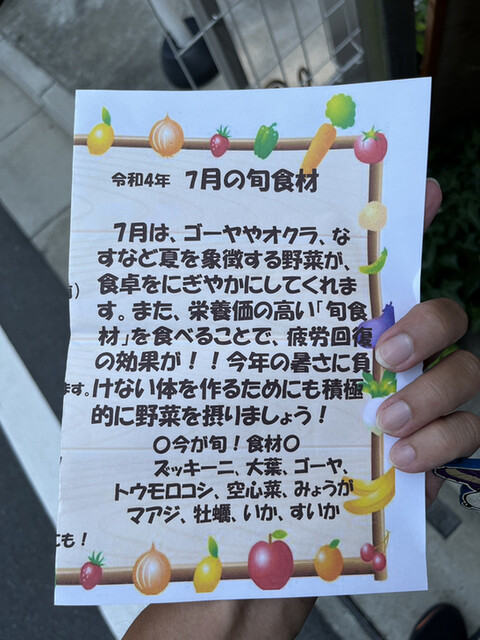 令和4年 7月の旬食材
7月は、ゴーヤやオクラ、な
すなど夏を象徴する野菜が、
食卓をにぎやかにしてくれま
す。また、栄養価の高い「旬食
材」を食べることで、疲労回復
の効果が!!今年の暑さに負
ます。けない体を作るためにも積極
的に野菜を摂りましょう!
〇今が旬!食材〇
ズッキーニ、大葉、ゴーヤ、
トウモロコシ、空心菜、みょうが
マアジ、牡蠣、いか、すいか
も!